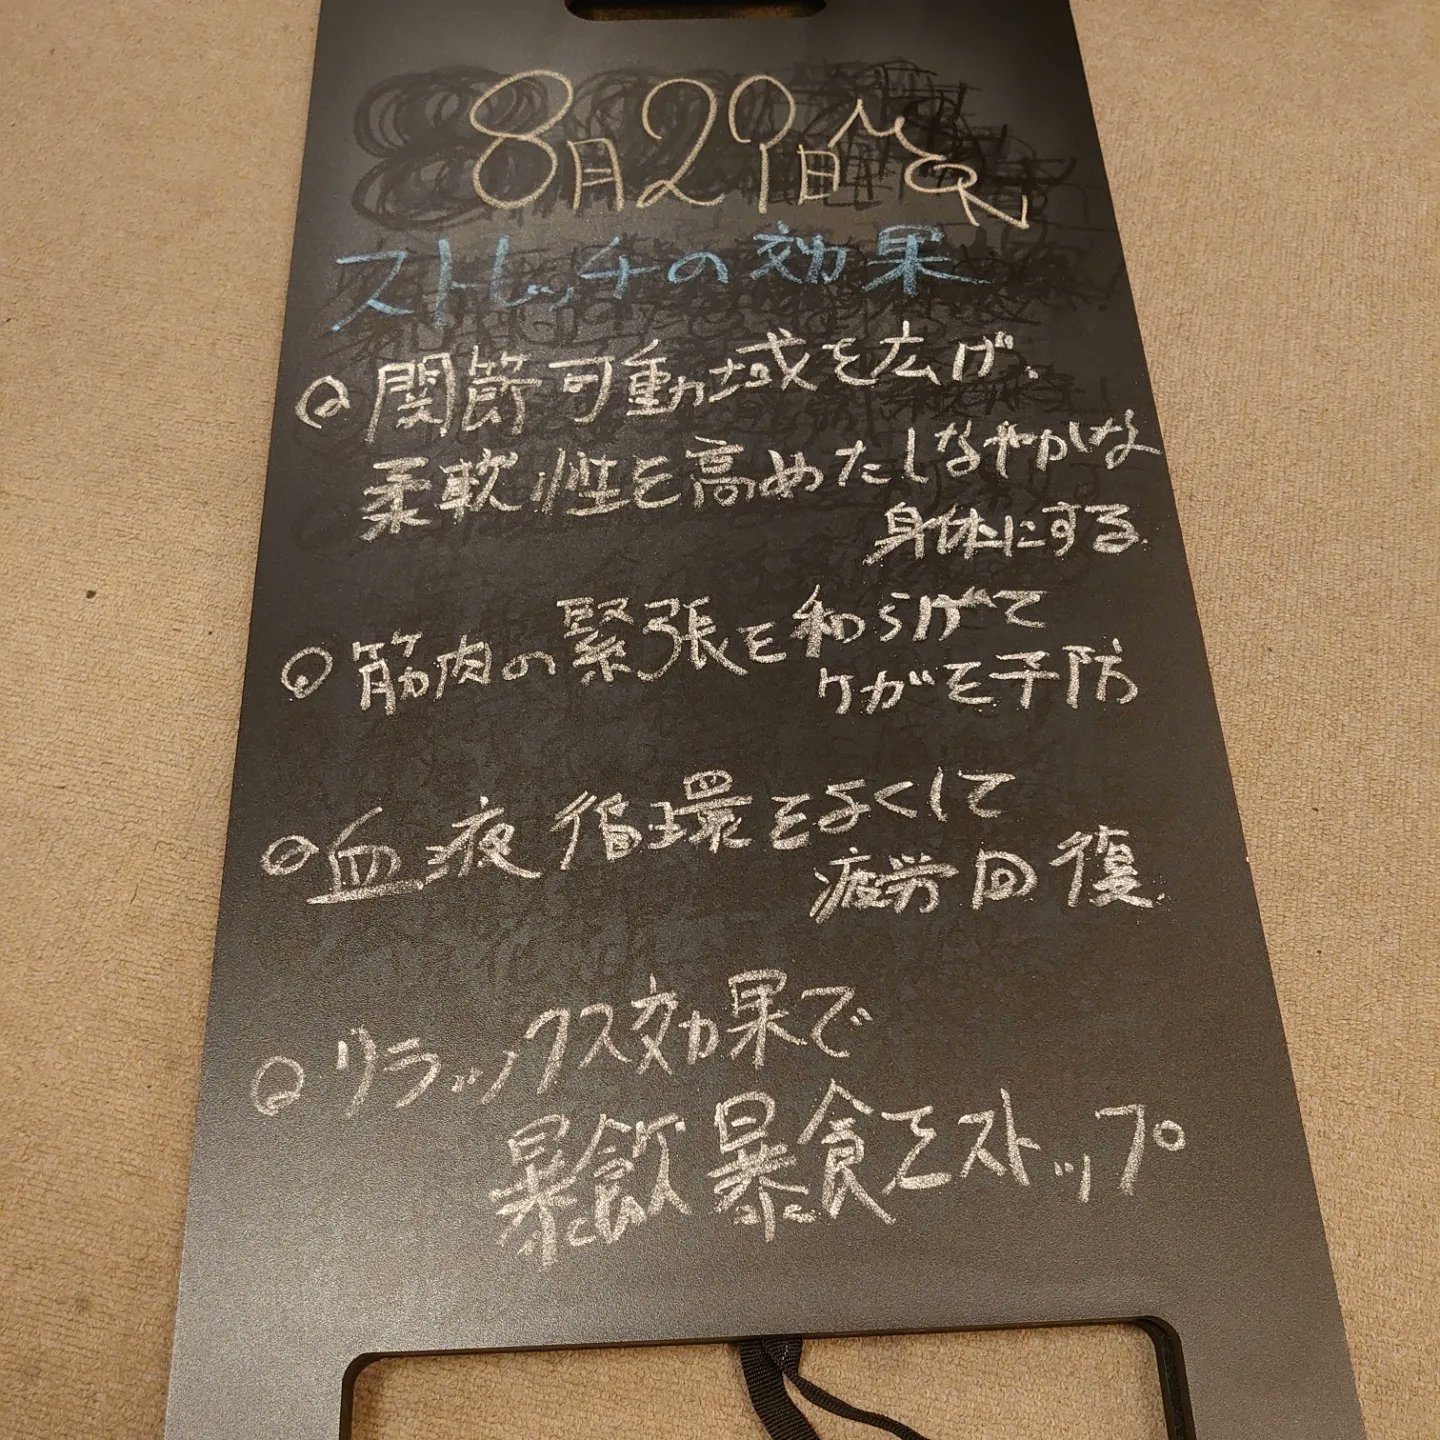 8月29日 MON
ストレッチの効果
関節可動域を広げ、
柔軟性を高めたしなやかな
身体にする
筋肉の緊張を和らげて
ケガを予防
血液循環をよくして
疲労回復
リラックス効果で
暴飲暴食をストップ